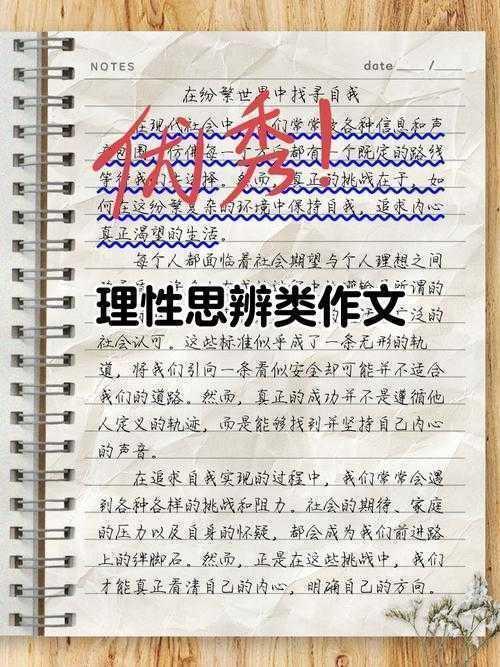 NOTES
date / 
在纷繁世界中找寻自我
优秀!
在现代社会中 们常常 各种信息和声
包围 仿佛每 后都有一个既定的路线
等待我们去选择。然而,真正的挑战在于,如
何在这纷繁复杂的环境中保持自我,追求内心
真正渴望的生活。
每个人都面临着社会期望与个人理想之间
所谓的
理性思辨类作文
广泛的
社会认可。这些标准似乎成了一条无形的轨
道,将我们引向一条看似安全却可能并不适合
我们的道路。然而,真正的成功并不是遵循他
人定义的轨迹,而是能够找到并坚持自己内心
的声音。
在追求自我实现的过程中,我们常常会遇
到各种各样的挑战和阻力。社会的期待、家庭
的压力以及自身的怀疑,都会成为我们前进路
上的绊脚石。然而,正是在这些挑战中,我们
才能真正看清自己的内心,明确自己的方向。